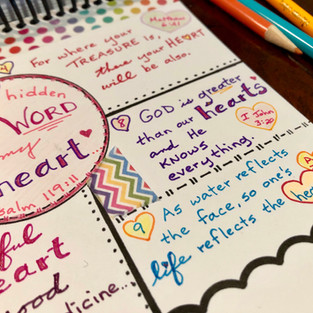 Matthew
6:21
For where your
TREASURE is,
there your HEART
will be also.
hidden
WORD
my
heart
Psalm 119:11
8
GOD is greater
than our hearts
and He
KNOWS
everything.
I John
3:20
9
As water reflects
the face, so one's
life reflects the
ful
heart
good
medicine...